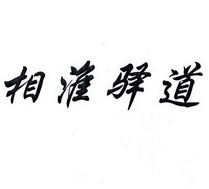 相淮驿道